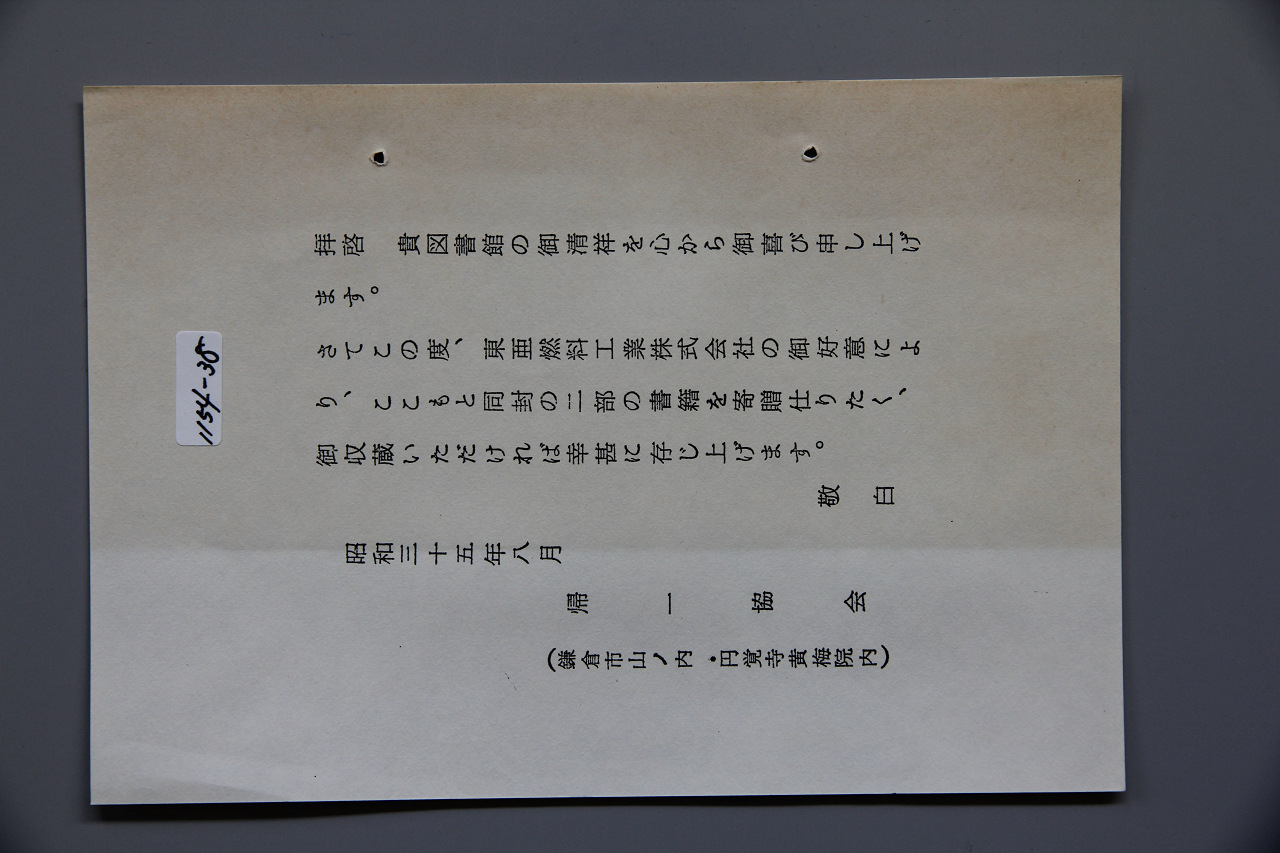 拝啓　貴図書館の御清祥を心から御喜び申し上げ
ます。
さてこの度、東亜燃料工業株式会社の御好意によ
り、ここもと同封の二部の書籍を寄贈仕りたく、
御収蔵いただければ幸甚に存じ上げます。
敬　白
昭和三十五年八月
帰　一　協　会
（鎌倉市山ノ内・円覚寺黄梅院内）
1154-38